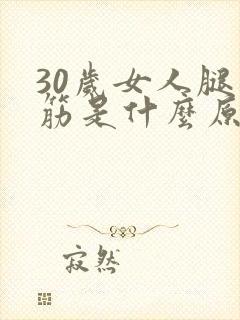 30歲女人腿
筋是什麼原
寂然